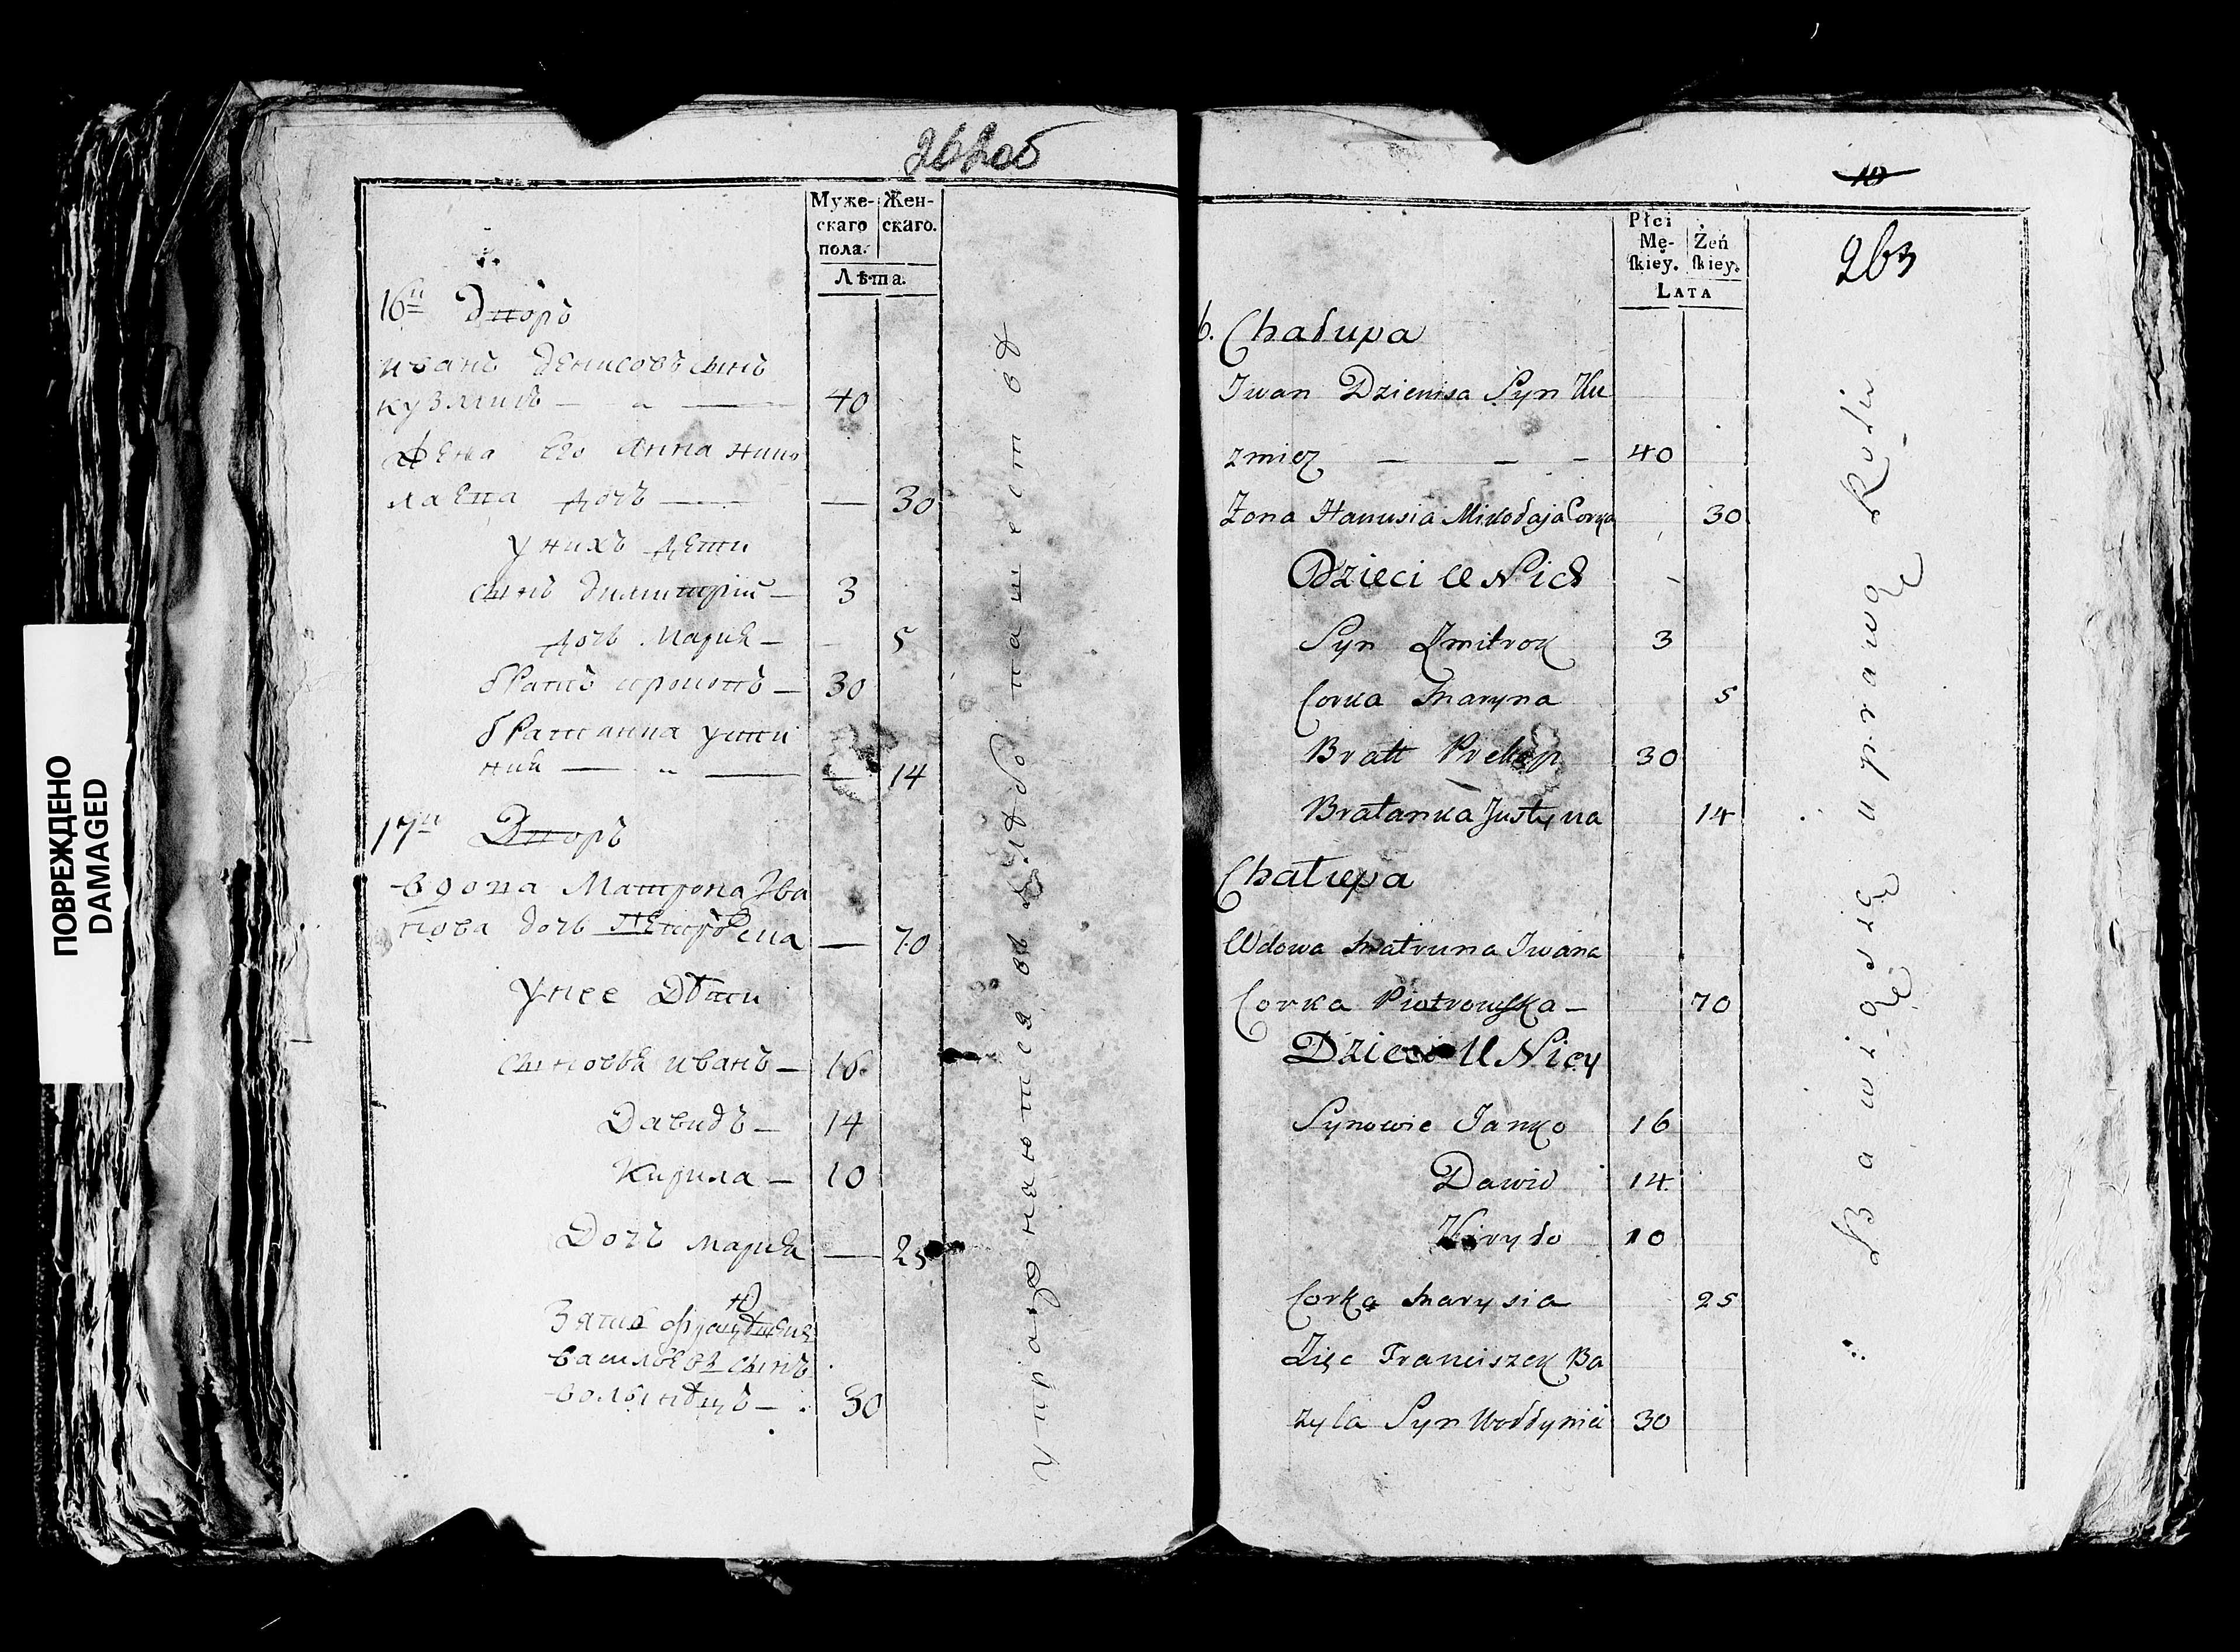 ПОВРЕЖДЕНО
DAMAGED
262об
Муже-
скаго
пола.
Жен-
скаго.
Лѣта.
16й Дворъ
иванъ денисовъ сынъ
кузмичъ — „ — 40
жена его Анна нико
лаева дочь — — 30
у нихъ дети
сынъ димитрій — 3
дочь Мария — - 5
братъ прокопъ — 30
братанна усти
ния — „ — — 14
17й Дворъ
вдова Матрона Ива
нова дочь — 70
У нее Дѣти
сыновья иванъ — 16
Давидъ — 14
Кирила — 10
Дочь мария — 25
Зять
васильевъ сынъ
волынецъ — 30
упражняются въ хлѣбопашествѣ
10
263
Płci
Mę-
ſkiey.
Żeń
ſkiey.
LATA
6. Chałupa
Iwan Dzienisa Syn Ku
zmicz — — — 40
Zona Hanusia Mikołaja Corka 30
Dzieci U Nich
Syn Zmitrok 3
Corka Maryna 5
Bratt Prokop 30
Bratanka Justyna 14
Chałupa
Wdowa Matruna Iwana
Corka Piotrowska — 70
Dzieci U Niey
Synowie Janko 16
Dawid 14
Kiryło 10
Corka Marysia 25
Zięc Franciszek Ba
zyla Syn 30
Bawiqsię uprawą Roli